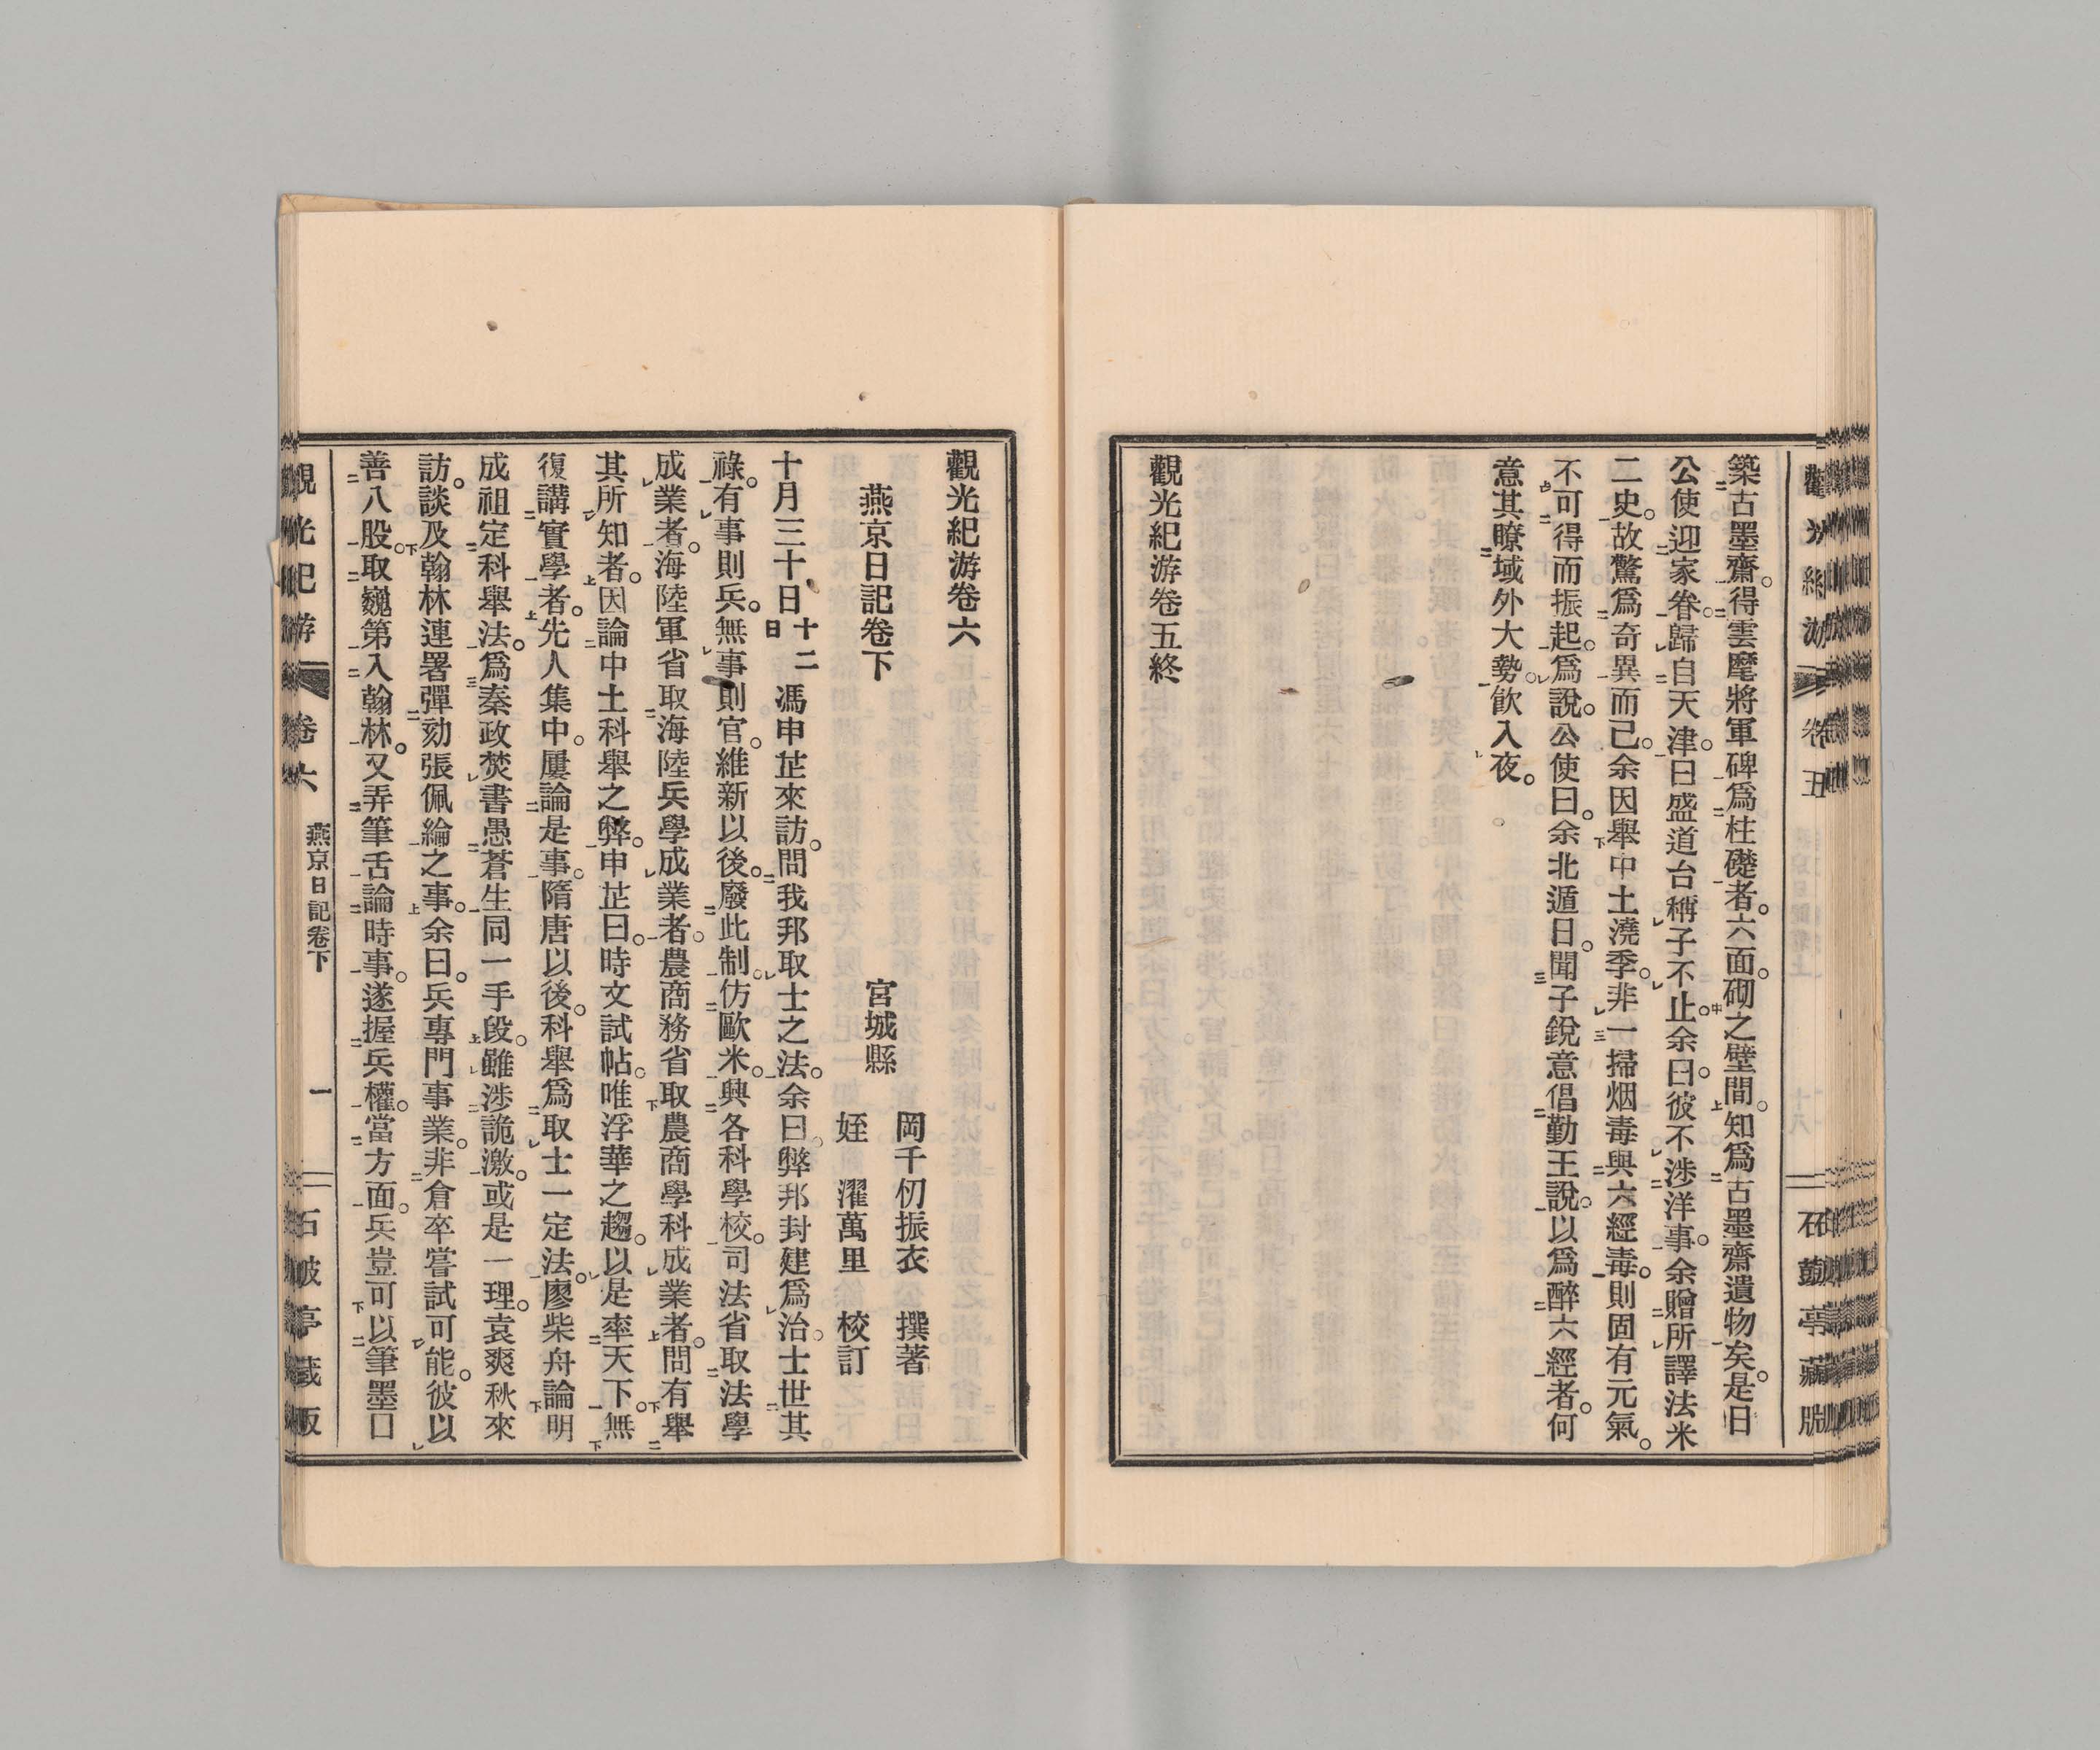 築古墨齋。得雲麾將軍碑爲柱礎者。六面。砌之壁間。知爲古墨齋遺物矣。是日
公使迎家眷歸自天津。曰盛道台稱子不止。余曰。彼不涉洋事。余贈所譯法米
二史。故驚爲奇異而己。余因舉中土澆季。非一掃烟毒與六經毒。則固有元氣。
不可得而振起。爲說。公使曰。余北遁日。聞子銳意倡勤王說。以爲醉六經者。何
意其瞭域外大勢。飮入夜。
觀光紀游卷五終
卷五
石鼓亭藏版
觀光紀游卷六
燕京日記卷下
宮城縣
岡千仞振衣 撰著
姪 濯萬里 校訂
十月三十日十二日馮申芷來訪。問我邦取士之法。余曰。弊邦封建爲治。士世其
祿。有事則兵。無事則官。維新以後。廢此制。仿歐米。興各科學校。司法省取法學
成業者。海陸軍省取海陸兵學成業者。農商務省取農商學科成業者。問有舉
其所知者。因論中土科舉之弊。申芷曰。時文試帖。唯浮華之趨。以是率天下。無
復講實學者。先人集中。屢論是事。隋唐以後。科舉爲取士一定法。廖柴舟論明
成祖定科舉法。爲秦政焚書愚蒼生同一手段。雖涉詭激。或是一理。袁爽秋來
訪。談及翰林連署彈劾張佩綸之事。余曰。兵專門事業。非倉卒嘗試可能。彼以
善八股。取巍第入翰林。又弄筆舌論時事。遂握兵權。當方面。兵豈可以筆墨口
觀光紀游
卷六
燕京日記卷下
一
石鼓亭藏版